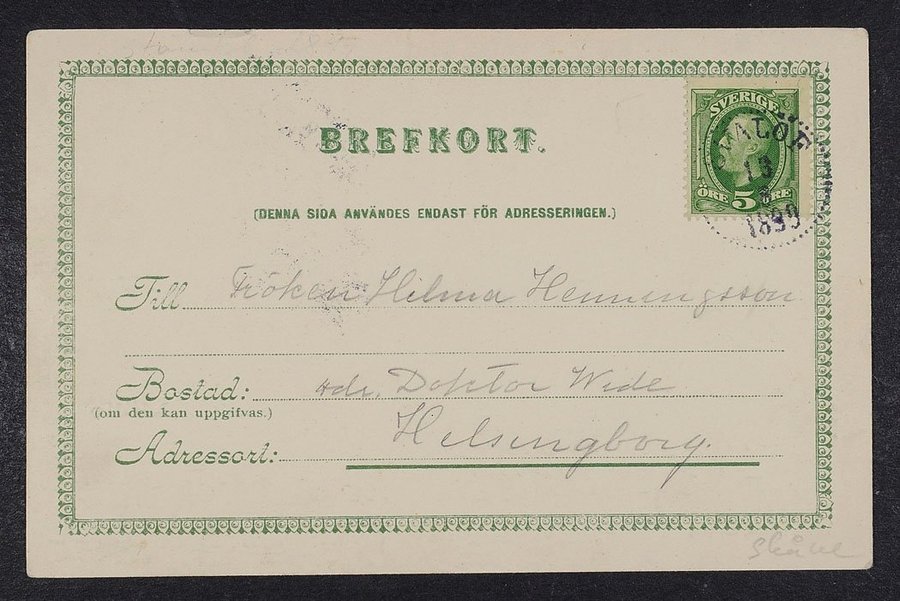 BREFKORT.
SVERIGE
ÖRE 5 ÖRE
SVALÖF
1899
(DENNA SIDA ANVÄNDES ENDAST FÖR ADRESSERINGEN.)
Till Fröken Hilma Henningsson
Bostad: adr. Doktor Wide
(om den kan uppgifvas.)
Helsingborg.
Adressort:
Skåne